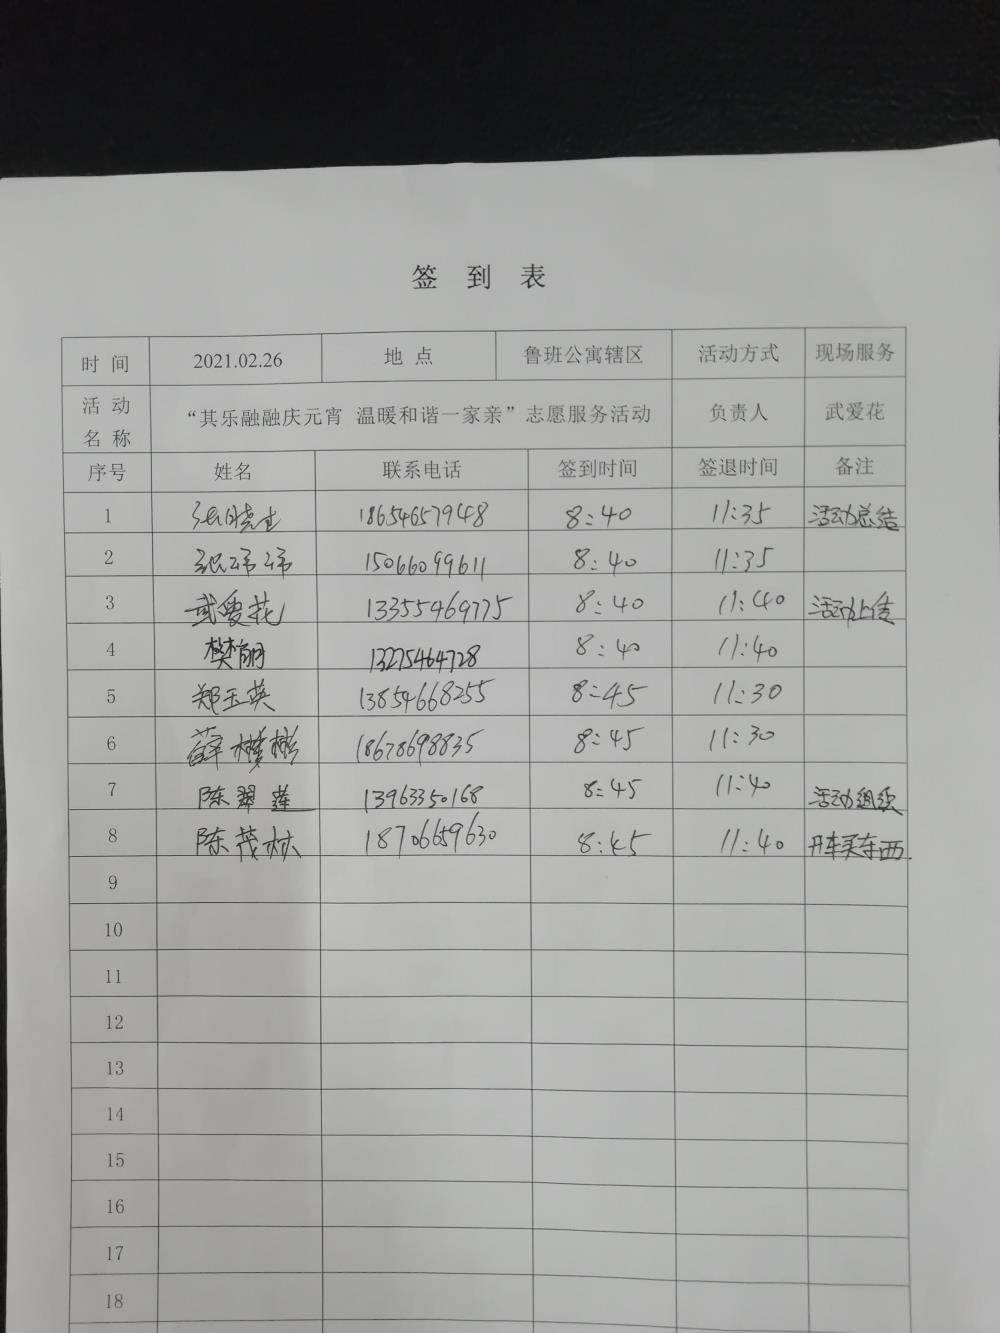 签 到 表
时 间 2021.02.26 地 点 鲁班公寓辖区 活动方式 现场服务
活 动 名 称 “其乐融融庆元宵 温暖和谐一家亲”志愿服务活动 负责人 武爱花
序号 姓名 联系电话 签到时间 签退时间 备注
1 张晓生 18654657948 8:40 11:35 活动总结
2 15066099611 8:40 11:35
3 武爱花 13355469775 8:40 11:40 活动上传
4 樊丽 13275464728 8:40 11:40
5 郑玉英 13854668255 8:45 11:30
6 薛彬彬 18678698835 8:45 11:30
7 陈翠莲 13963350168 8:45 11:40 活动组织
8 陈茂林 18706659630 8:45 11:40 开车买东西
9
10
11
12
13
14
15
16
17
18